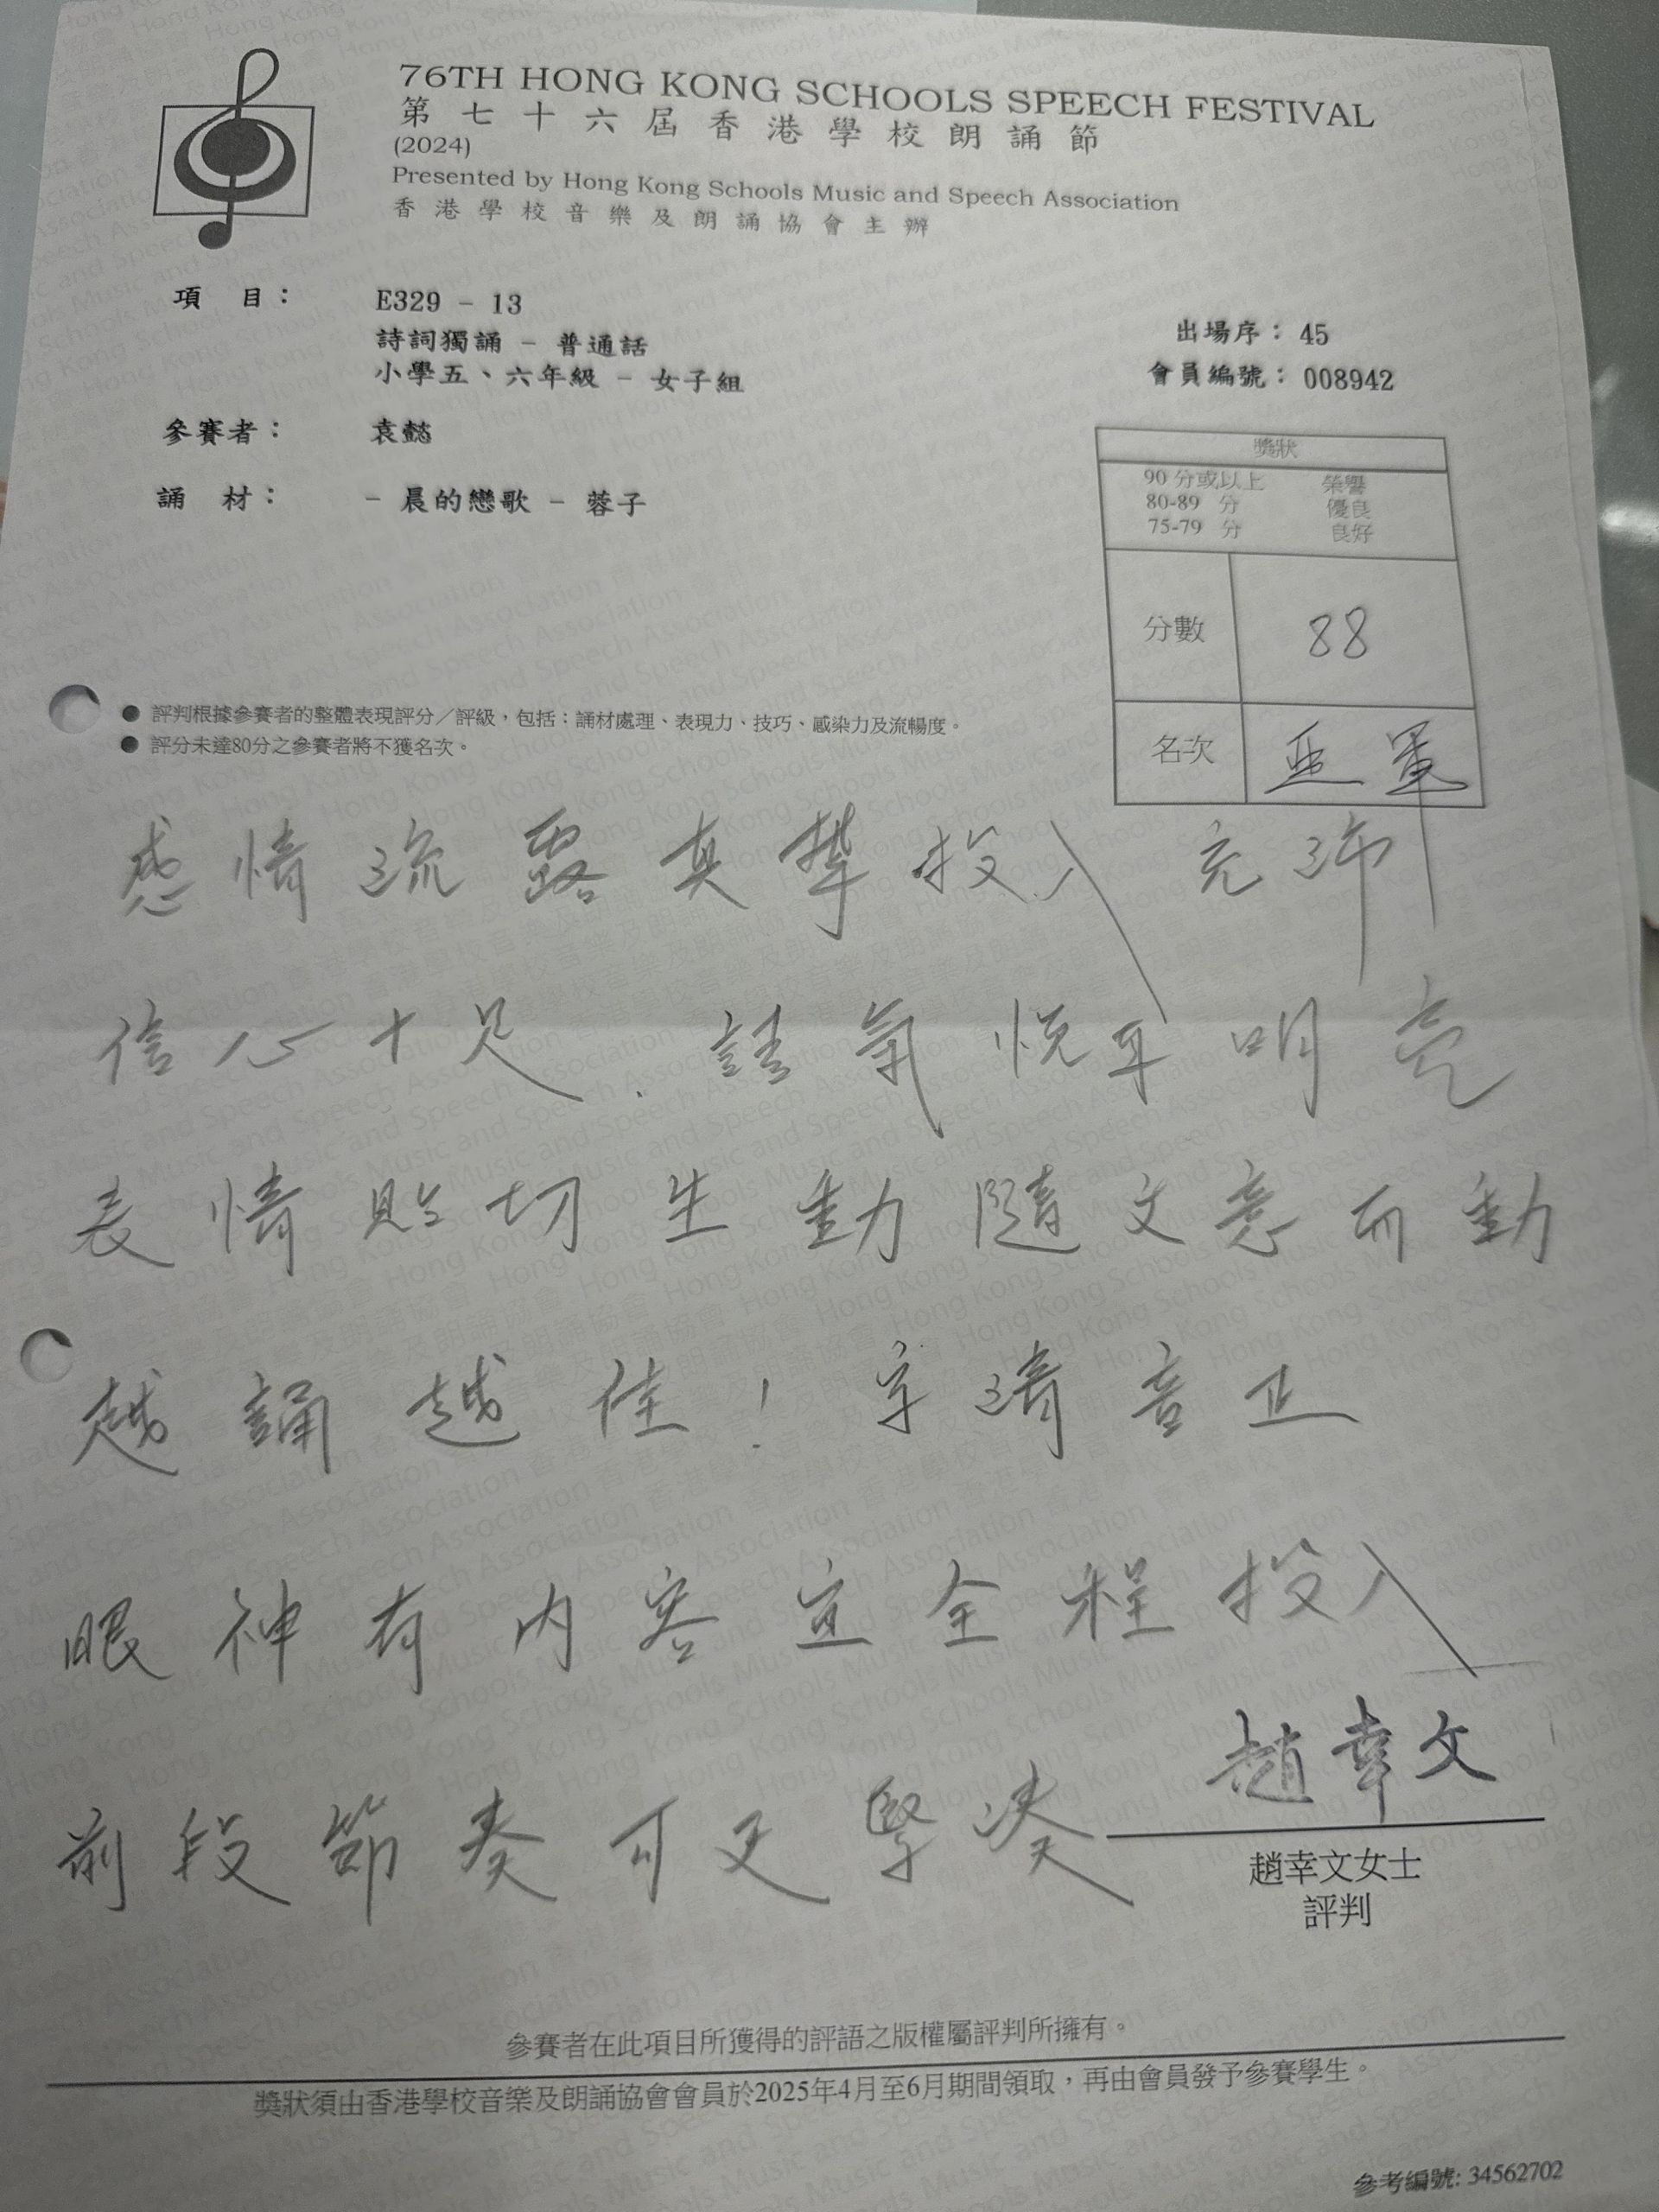 76TH HONG KONG SCHOOLS SPEECH FESTIVAL
第七十六屆香港學校朗誦節
(2024)
Presented by Hong Kong Schools Music and Speech Association
香港學校音樂及朗誦協會主辦
項 目： E329 - 13
詩詞獨誦 - 普通話
小學五、六年級 - 女子組
出場序： 45
會員編號： 008942
參賽者： 袁懿
誦 材： - 晨的戀歌 - 蓉子
獎狀
90 分或以上 榮譽
80-89 分 優良
75-79 分 良好
分數 88
名次 亞軍
● 評判根據參賽者的整體表現評分／評級，包括：誦材處理、表現力、技巧、感染力及流暢度。
● 評分未達80分之參賽者將不獲名次。
感情流露真摯投入 充沛
信心十足．語氣悅耳明亮
表情貼切生動隨文意而動
越誦越佳！字清音正
眼神有內容宜全程投入
前段節奏可更緊湊
趙幸文
趙幸文女士
評判
參賽者在此項目所獲得的評語之版權屬評判所擁有。
獎狀須由香港學校音樂及朗誦協會會員於2025年4月至6月期間領取，再由會員發予參賽學生。
參考編號: 34562702